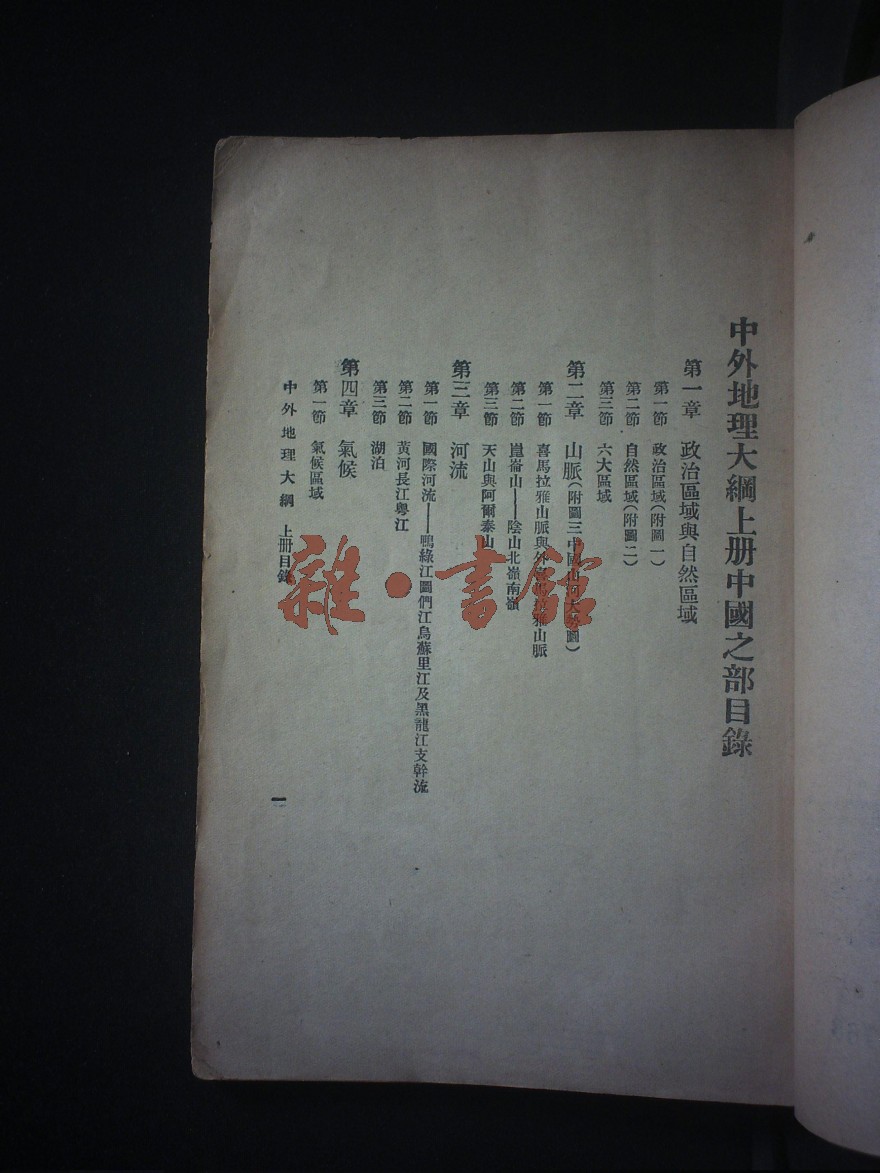 中外地理大綱上册中國之部目錄
第一章 政治區域與自然區域
第一節 政治區域(附圖一)
第二節 自然區域(附圖二)
第三節 六大區域
第二章 山脈(附圖三中國山河大勢圖)
第一節 喜馬拉雅山脈與外喜馬拉雅山脈
第二節 崑崙山——陰山北嶺南嶺
第三節 天山與阿爾泰山
第三章 河流
第一節 國際河流——鴨綠江圖們江烏蘇里江及黑龍江支幹流
第二節 黃河長江粵江
第三節 湖泊
第四章 氣候
第一節 氣候區域
中外地理大綱 上册目錄
一
雜·書館